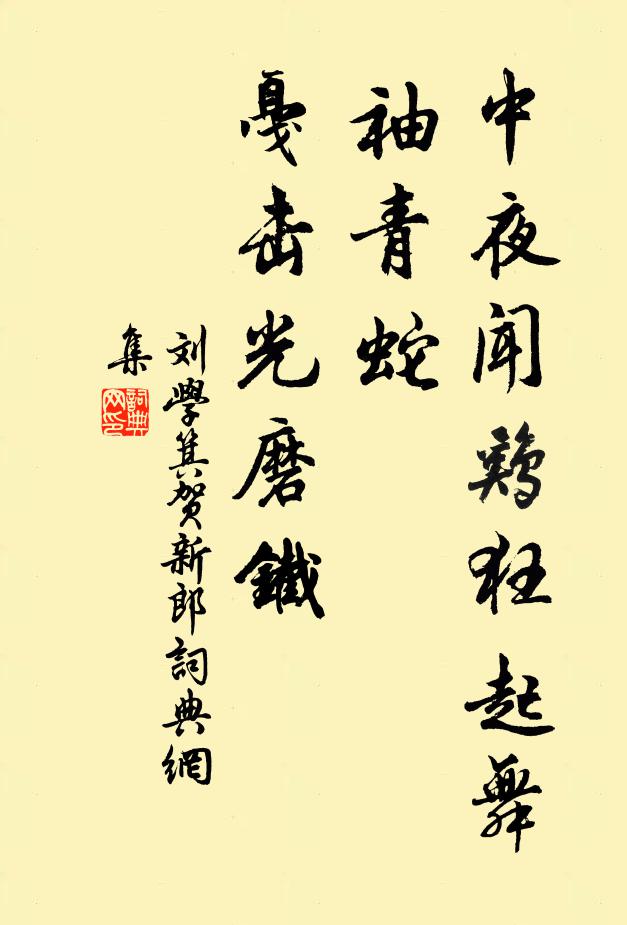 中夜闻鷄狂起舞
袖青蛇
戞击光磨鐵
刘學箕贺新郎詞典網
集
詞典
网印